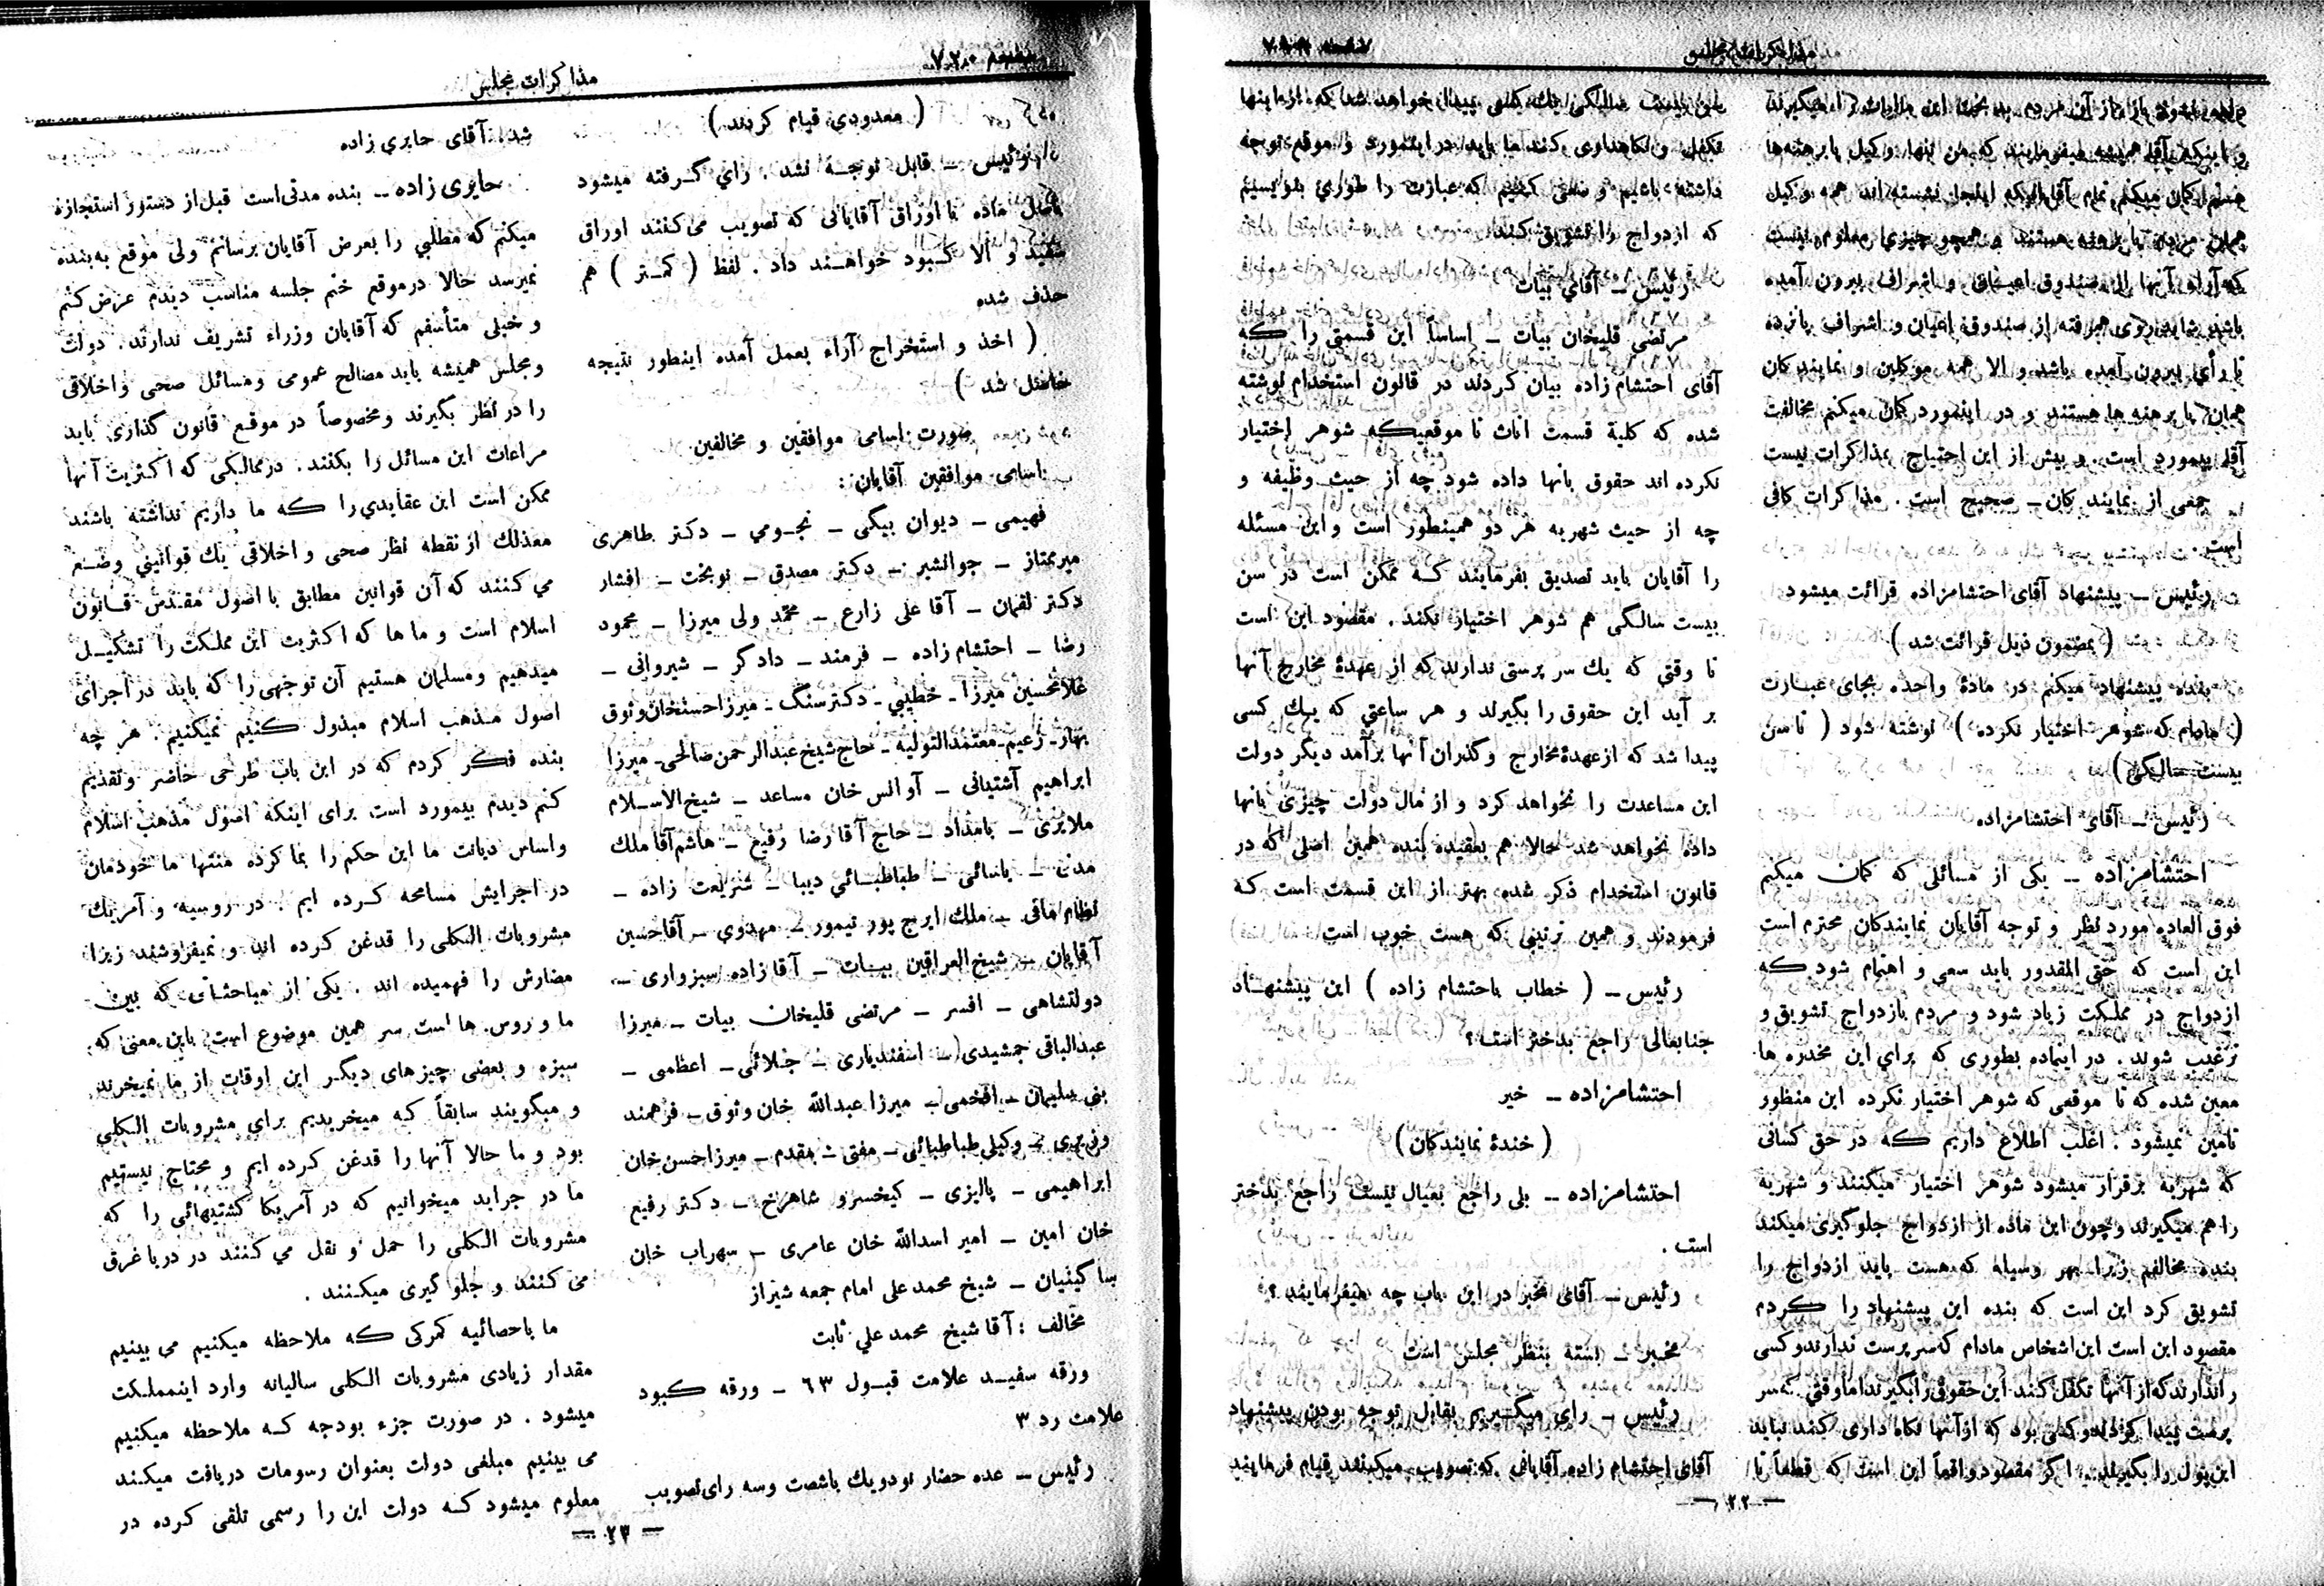 مذاکرات مجلس
باشد شاید روی همرفته از صندوق اعیان و اشراف پانزده
تا رأی بیرون آمده باشد و الا همه موکلین و نمایندکان
همان پا برهنه ها هستند و در اینمورد کمان میکنم مخالفت
آقا بیمورد است. و بیش از این احتیاج بمذاکرات نیست
جمعی از نمایندکان ــ صحیح است . مذاکرات کافی
است.
رئیس ــ پیشنهاد آقای احتشامزاده قرائت میشود
( بمضمون ذیل قرائت شد )
بنده پیشنهاد میکنم در مادهٔ واحده بجای عبــارت
( مادام که شوهر اختیار نکرده ) نوشته شود ( تا سن
بیست سالگی )
رئیس ــ آقای احتشامزاده
احتشامزاده ــ یکی از مسائلی که کمان میکنم
فوق العاده مورد نظر و توجه آقایان نمایندکان محترم است
این است که حتی المقدور باید سعی و اهتمام شود که
ازدواج در مملکت زیاد شود و مردم بازدواج تشویق و
ترغیب شوند . در اینماده بطوری که برای این مخدره ها
معین شده که تا موقعی که شوهر اختیار نکرده این منظور
تامین نمیشود . اغلب اطلاع داریم که در حق کسانی
که شهریه برقرار میشود شوهر اختیار میکنند و شهریه
را هم میگیرند و چون این ماده از ازدواج جلوگیری میکند
بنده مخالفم زیرا بهر وسیله که هست باید ازدواج را
تشویق کرد این است که بنده این پیشنهاد را کردم
مقصود این است این اشخاص مادام که سرپرست ندارند و کسی
را ندارند که از آنها تکفل کنند این حقوق را بگیرند اما وقتی که سر
پرست پیدا کردند و کسی بود که از آنها نگاه داری کند نباید
این پول را بگیرند. اگر مقصود واقعاً این است که قطعاً تا
داشته باشیم و سعی کنیم که عبارت را طوری بنویسیم
که ازدواج را تشویق کند
رئیس ــ آقای بیات
مرتضی قلیخان بیات ــ اساساً این قسمتی را که
آقای احتشام زاده بیان کردند در قانون استخدام نوشته
شده که کلیهٔ قسمت اناث تا موقعیکه شوهر اختیار
نکرده اند حقوق بانها داده شود چه از حیث وظیفه و
چه از حیث شهریه هر دو همینطور است و این مسئله
را آقایان باید تصدیق بفرمایند که ممکن است در سن
بیست سالگی هم شوهر اختیار نکند . مقصود این است
تا وقتی که یك سر پرستی ندارند که از عهدهٔ مخارج آنها
بر آید این حقوق را بگیرند و هر ساعتی که یك کسی
پیدا شد که از عهدهٔ مخارج و گذران آنها برآمد دیگر دولت
این مساعدت را نخواهد کرد و از مال دولت چیزی بانها
داده نخواهد شد حالا هم بعقیده بنده همین اصلی که در
قانون استخدام ذکر شده بهتر از این قسمت است که
فرمودند و همین ترتیبی که هست خوب است
رئیس ــ ( خطاب باحتشام زاده ) این پیشنهــاد
جنابعالی راجع بدختر است؟
احتشامزاده ــ خیر
( خندهٔ نمایندکان )
احتشامزاده ــ بلی راجع بعیال نیست راجع بدختر
است .
رئیس ــ آقای مخبر در این باب چه میفرمایند ؟
مخبر ــ بسته بنظر مجلس است
رئیس ــ رای میگیریم بقابل توجه بودن پیشنهاد
آقای احتشام زاده آقایانی که تصویب میکنند قیام فرمایند
ــ ۲۲ ــ
مذاکرات مجلس
( معدودی قیام کردند )
رئیس ــ قابل توجه نشد . رأی گرفته میشود
باصل ماده با اوراق آقایانی که تصویب می کنند اوراق
سفید و الا کبود خواهند داد . لفظ ( کمتر ) هم
حذف شده
( اخذ و استخراج آراء بعمل آمده اینطور نتیجه
حاصل شد )
صورت اسامی موافقین و مخالفین
اسامی موافقین آقایان :
فهیمی ــ دیوان بیگی ــ نجومی ــ دکتر طاهری
میرممتاز ــ جوانشیر ــ دکتر مصدق ــ نوبخت ــ افشار
دکتر لقمان ــ آقا علی زارع ــ محمد ولی میرزا ــ محمود
رضا ــ احتشام زاده ــ فرمند ــ دادگر ــ شیروانی ــ
غلامحسین میرزا ــ خطیبی ــ دکتر سنگ ــ میرزا حسنخان وثوق
بهار ــ زعیم ــ معتمدالتولیه ــ حاج شیخ عبدالرحمن صالحی ــ میرزا
ابراهیم آشتیانی ــ آوانس خان مساعد ــ شیخ الاسلام
ملایری ــ بامداد ــ حاج آقا رضا رفیع ــ هاشم آقا ملك
مدنی ــ یاسائی ــ طباطبائی دیبا ــ شریعت زاده ــ
نظام مافی ــ ملك ایرج پور تیمور ــ مهدوی ــ آقا حسین
آقایان ــ شیخ العراقین بیات ــ آقا زاده سبزواری ــ
دولتشاهی ــ افسر ــ مرتضی قلیخان بیات ــ میرزا
عبدالباقی جمشیدی ــ اسفندیاری ــ جلائی ــ اعظمی ــ
بنی سلیمان ــ افخمی ــ میرزا عبدالله خان وثوق ــ فرهمند
وزیری ــ وکیلی طباطبائی ــ مفتی ــ مقدم ــ میرزا حسن خان
ابراهیمی ــ پالیزی ــ کیخسرو شاهرخ ــ دکتر رفیع
خان امین ــ امیر اسدالله خان عامری ــ سهراب خان
ساکینیان ــ شیخ محمد علی امام جمعه شیراز
مخالف : آقا شیخ محمد علی ثابت
ورقه سفید علامت قبول ٦٣ ــ ورقه کبود
علامت رد ٣
رئیس ــ عده حضار نود و یك با شصت و سه رای تصویب
شد . آقای حایری زاده
حایری زاده ــ بنده مدتی است قبل از دستور استجازه
میکنم که مطلبی را بعرض آقایان برسانم ولی موقع به بنده
نمیرسد حالا در موقع ختم جلسه مناسب دیدم عرض کنم
و خیلی متأسفم که آقایان وزراء تشریف ندارند . دولت
و مجلس همیشه باید مصالح عمومی و مسائل صحی و اخلاقی
را در نظر بگیرند و مخصوصاً در موقع قانون گذاری باید
مراعات این مسائل را بکنند . در ممالکی که اکثریت آنها
ممکن است این عقایدی را که ما داریم نداشته باشند
معذلك از نقطه نظر صحی و اخلاقی یك قوانینی وضع
می کنند که آن قوانین مطابق با اصول مقدس قانون
اسلام است و ما ها که اکثریت این مملکت را تشکیل
میدهیم و مسلمان هستیم آن توجهی را که باید در اجرای
اصول مذهب اسلام مبذول کنیم نمیکنیم . هر چه
بنده فکر کردم که در این باب طرحی حاضر و تقدیم
کنم دیدم بیمورد است برای اینکه اصول مذهب اسلام
و اساس دیانت ما این حکم را بما کرده منتها ما خودمان
در اجرایش مسامحه کرده ایم . در روسیه و آمریك
مشروبات الکلی را قدغن کرده اند و نمیفروشند زیرا
مضارش را فهمیده اند . یکی از مباحثاتی که بین
ما و روس ها است سر همین موضوع است باین معنی که
سبزه و بعضی چیزهای دیگر این اوقات از ما نمیخرند
و میگویند سابقاً که میخریدیم برای مشروبات الکلی
بود و ما حالا آنها را قدغن کرده ایم و محتاج نیستیم
ما در جراید میخوانیم که در آمریکا کشتیهائی را که
مشروبات الکلی را حمل و نقل می کنند در دریا غرق
می کنند و جلو گیری میکنند .
ما باحصائیه گمرکی که ملاحظه میکنیم می بینیم
مقدار زیادی مشروبات الکلی سالیانه وارد اینمملکت
میشود . در صورت جزء بودجه که ملاحظه میکنیم
می بینیم مبلغی دولت بعنوان رسومات دریافت میکند
معلوم میشود که دولت این را رسمی تلقی کرده در
ــ ۲۳ ــ